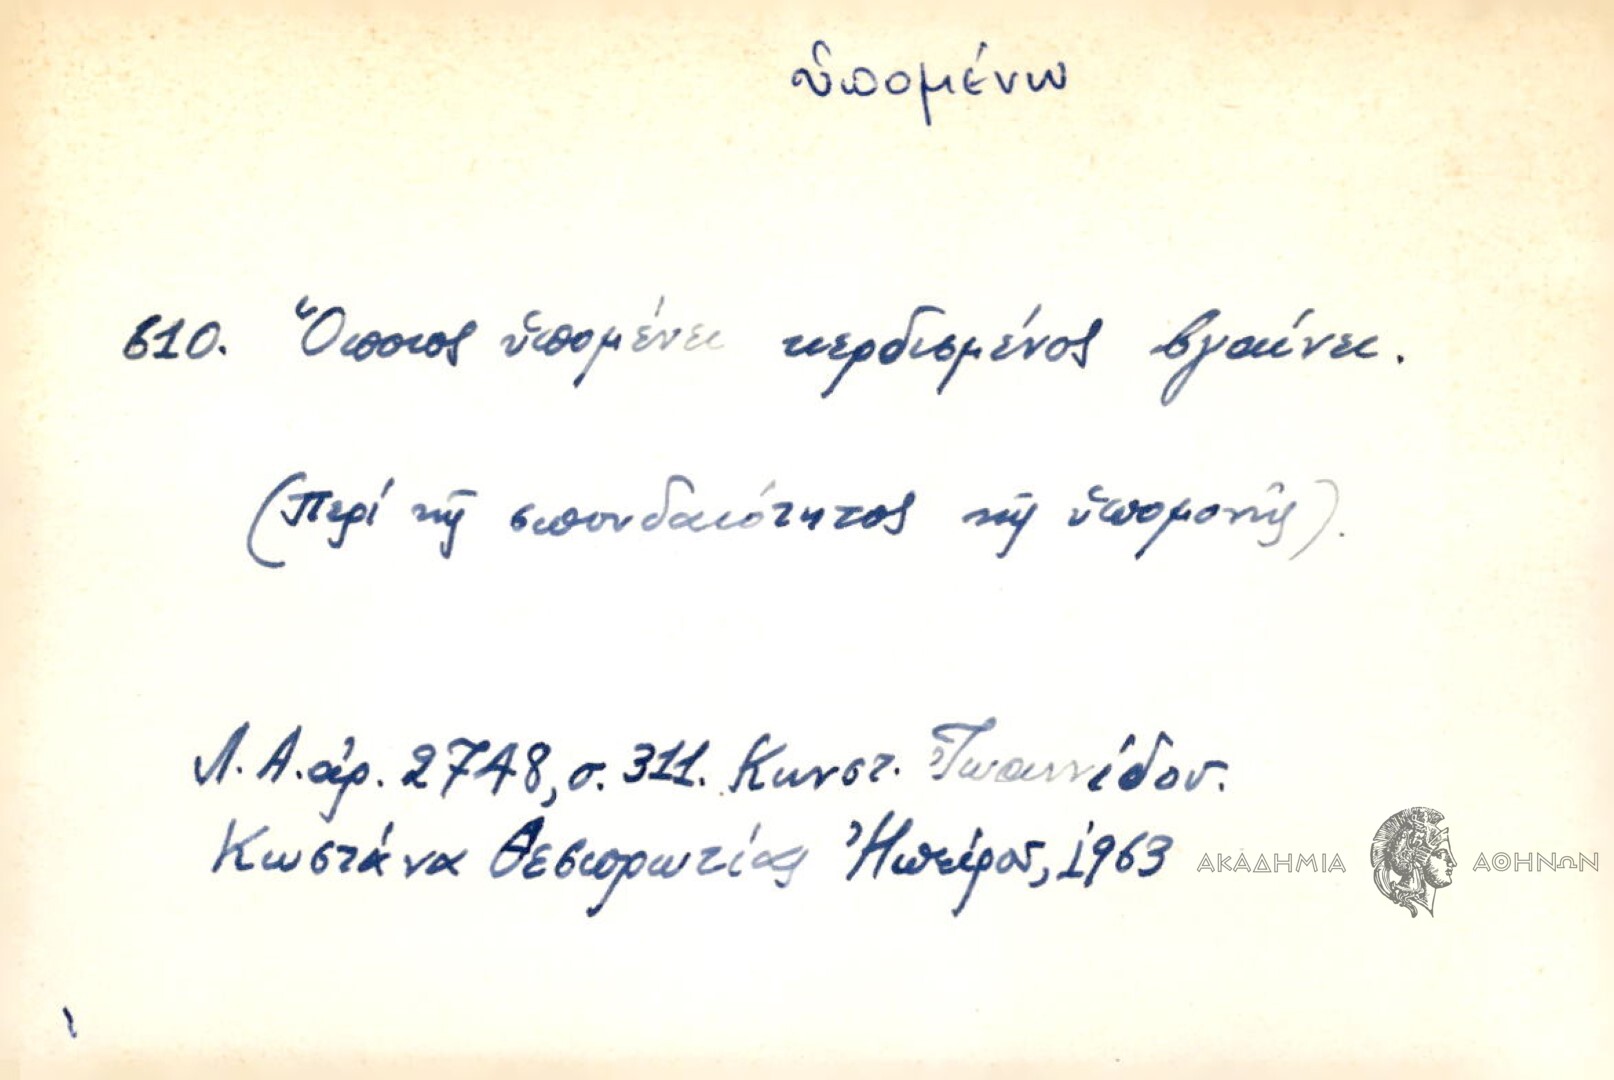 ὑπομένω
610. Ὅποιος ὑπομένει κερδισμένος βγαίνει.
(Περί τῆς σπουδαιότητος τῆς ὑπομονῆς).
Λ.Α.ἀρ. 2748, σ. 311. Κωνστ. Ἰωαννίδου.
Κωστάνα Θεσπρωτίας Ἠπείρου, 1963
ΑΚΑΔΗΜΙΑ ΑΘΗΝΩΝ